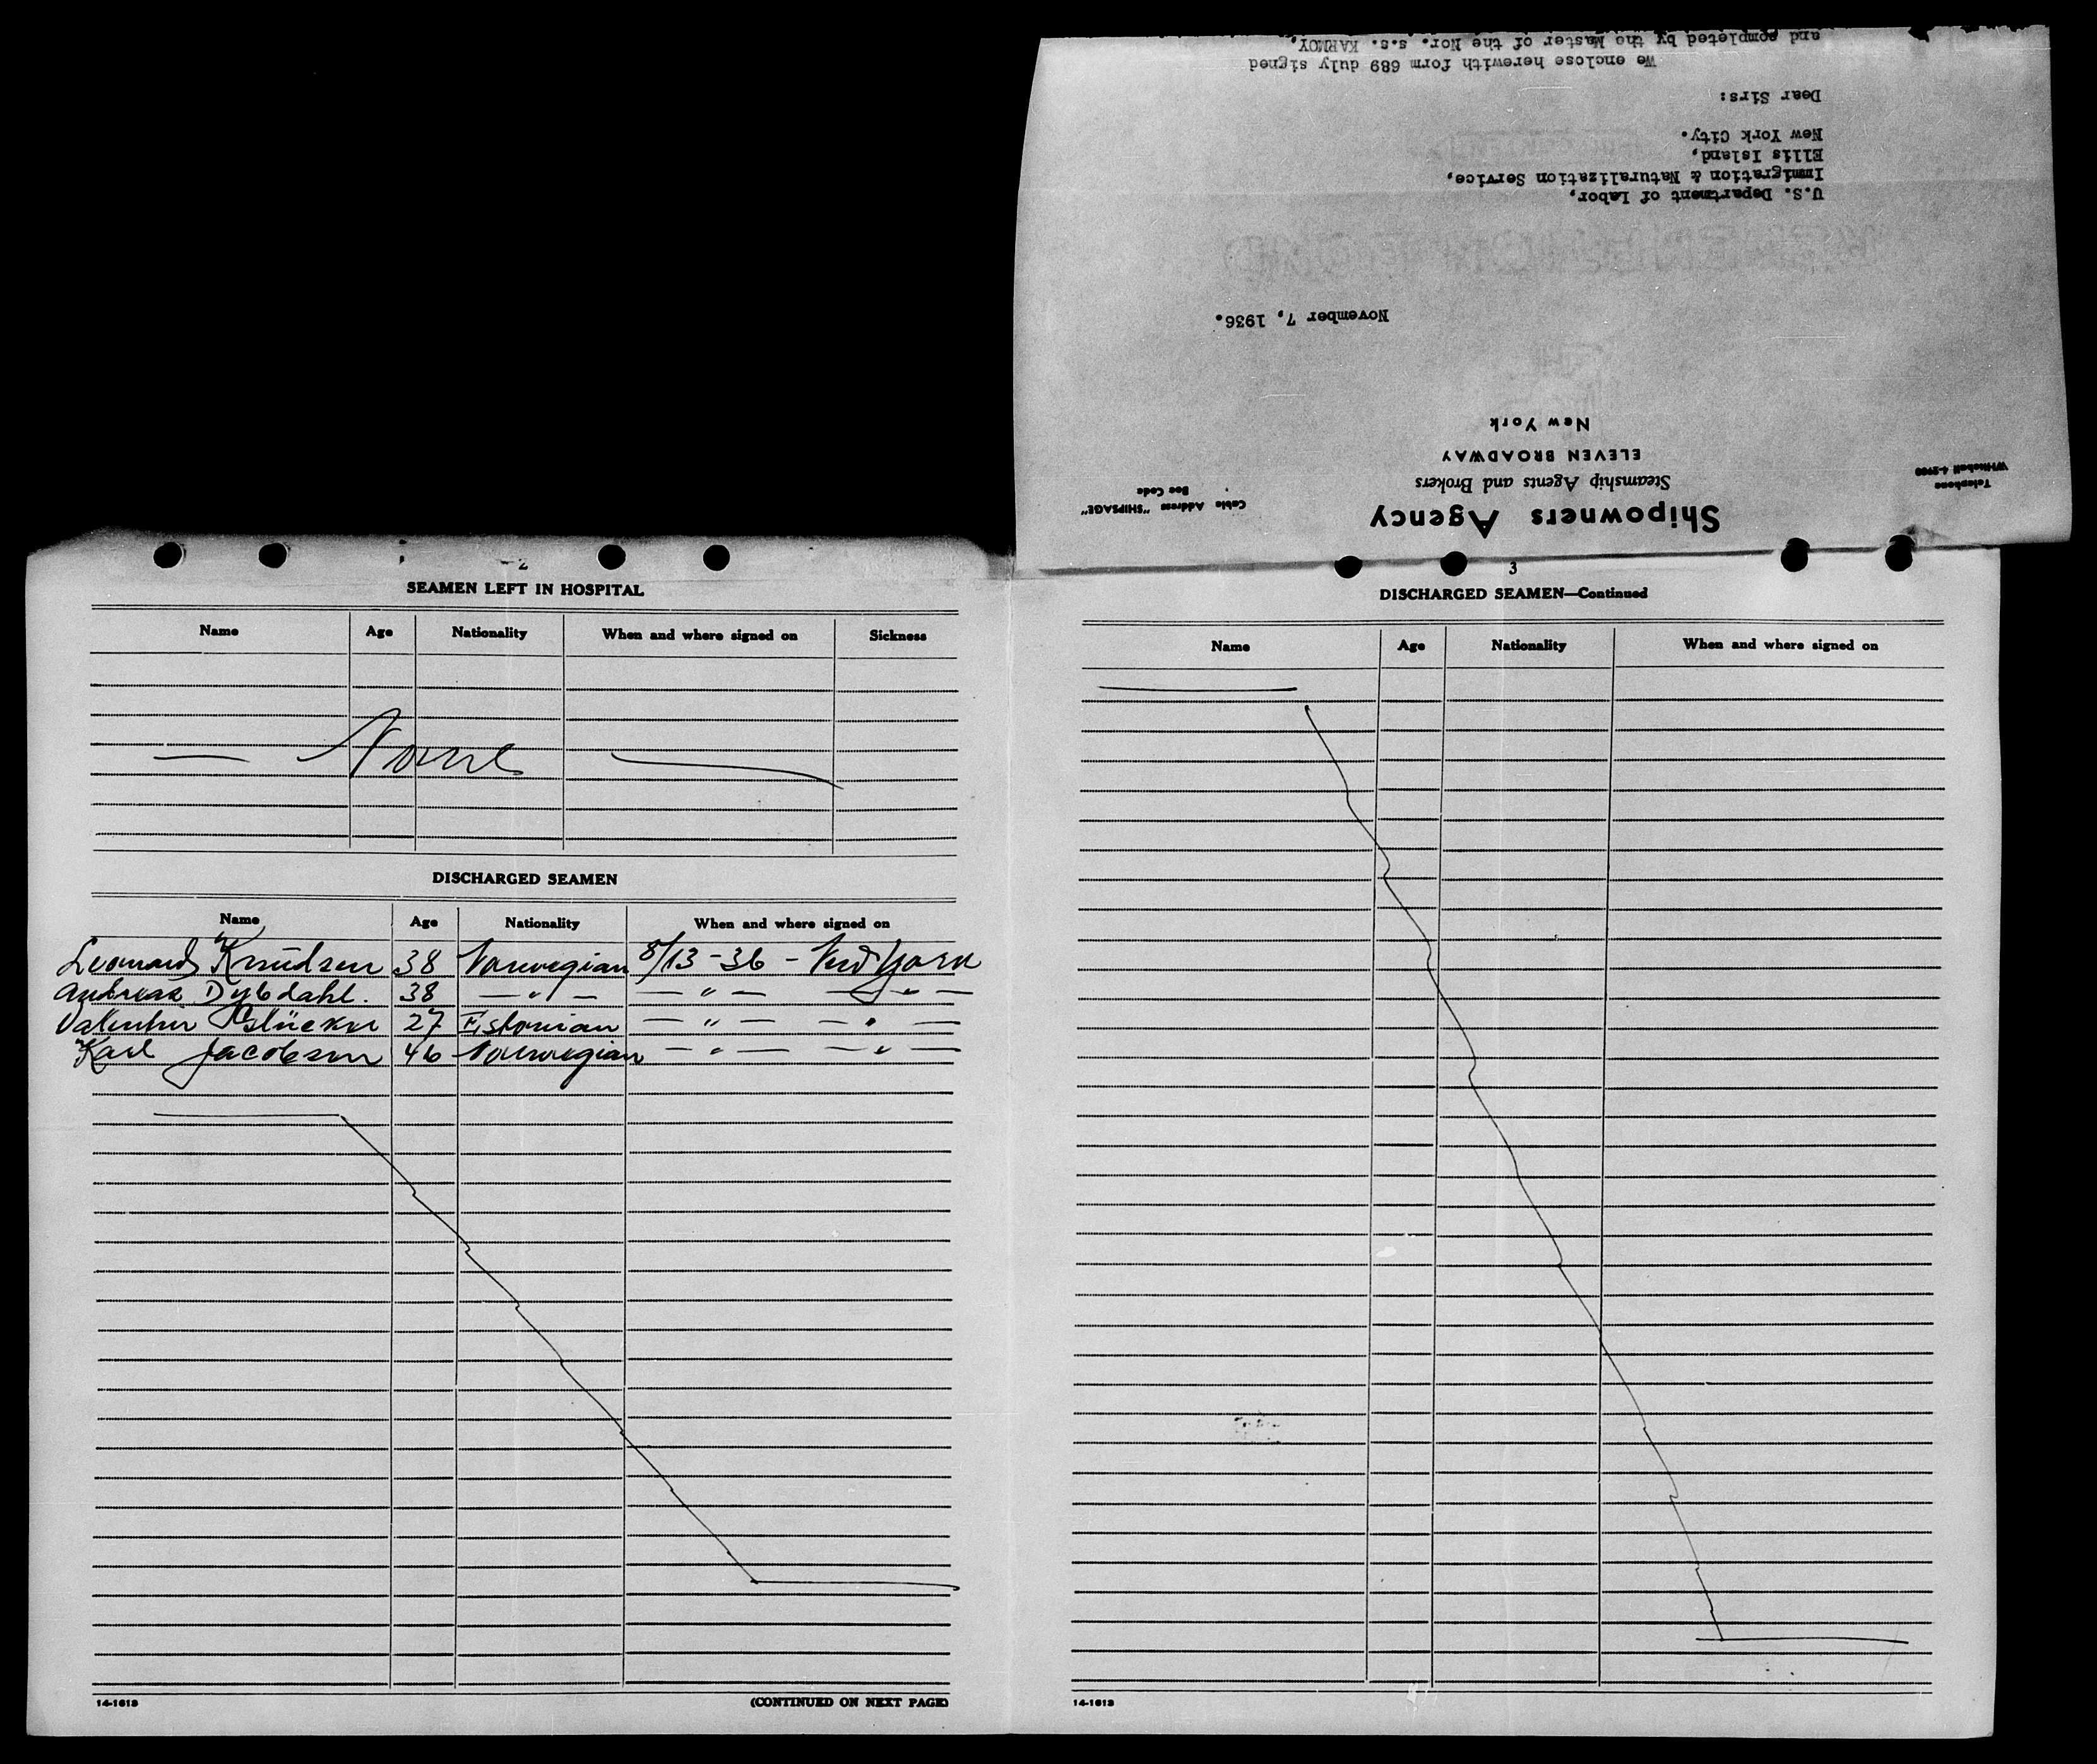 Shipowners Agency
Steamship Agents and Brokers
ELEVEN BROADWAY
New York
Telephone
WHitehall 4-2700
Cable Address "SHIPSAGE"
Boe Code
November 7, 1936.
U.S. Department of Labor,
Immigration & Naturalization Service,
Ellis Island,
New York City.
Dear Sirs:
We enclose herewith form 689 duly signed
and completed by the Master of the Nor. s.s. KARMOY.
2
SEAMEN LEFT IN HOSPITAL
Name Age Nationality When and where signed on Sickness
— None —
DISCHARGED SEAMEN
Name Age Nationality When and where signed on
Leonard Knudsen 38 Norwegian 8/13-36 - New York
Andreas Dybdahl. 38 — " — — " — — " —
27 Estonian — " — — " —
Karl Jacobsen 46 Norwegian — " — — " —
14-1613
(CONTINUED ON NEXT PAGE)
3
DISCHARGED SEAMEN—Continued
Name Age Nationality When and where signed on
14-1613